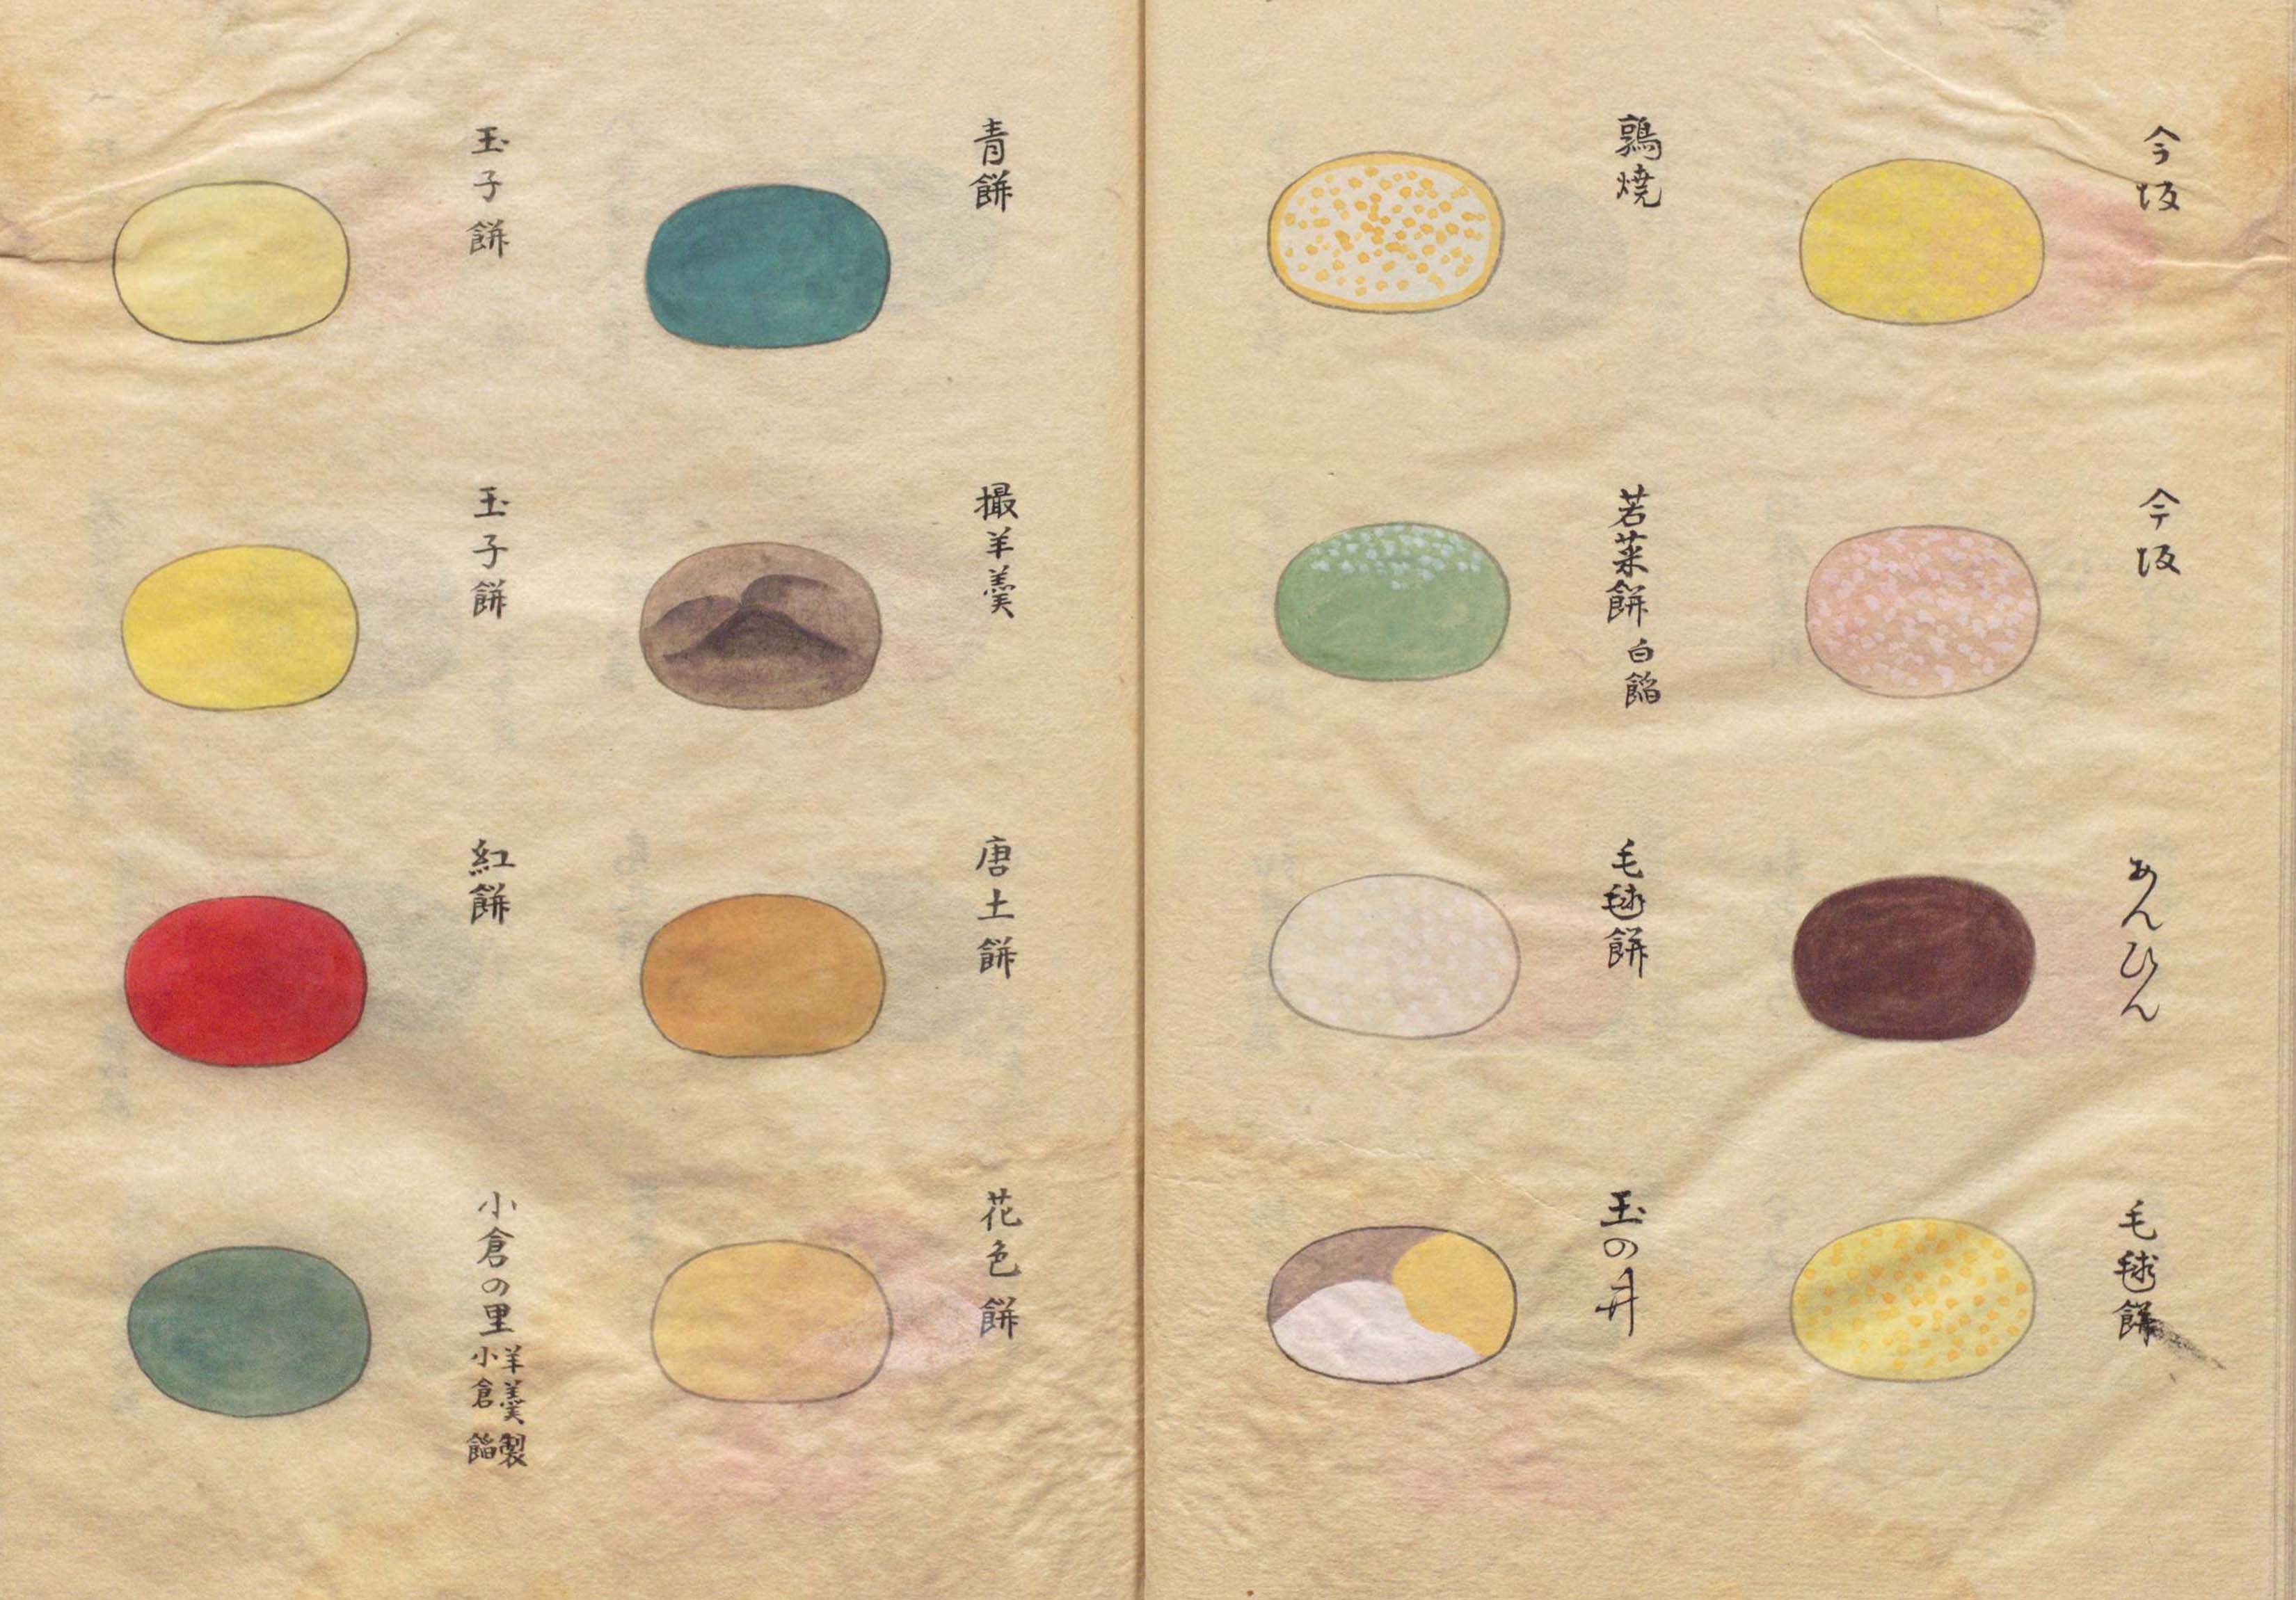 今坂
今坂
あんひん
毛毬餅
鶉焼
若菜餅 白餡
毛毬餅
玉の井
青餅
撮羊羹
唐土餅
花色餅
玉子餅
玉子餅
紅餅
小倉の里 羊羹製
小倉餡